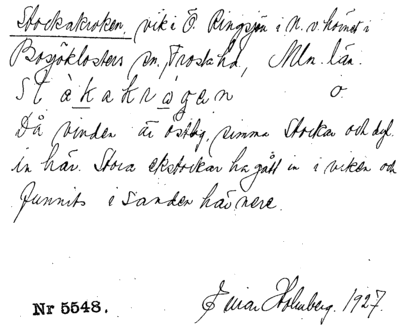 Stockakroken, vik i Ö. Ringsjön i n.v. hörnet i
Bosjöklosters sn, Frosta hd, Mln. län.
Stàkakrògan o.
Då vinden är ostlig, simma stockar och dyl.
in här. Stora ekstockar ha gått in i viken och
funnits i sanden här nere.
Nr 5548.
Einar Holmberg. 1927.